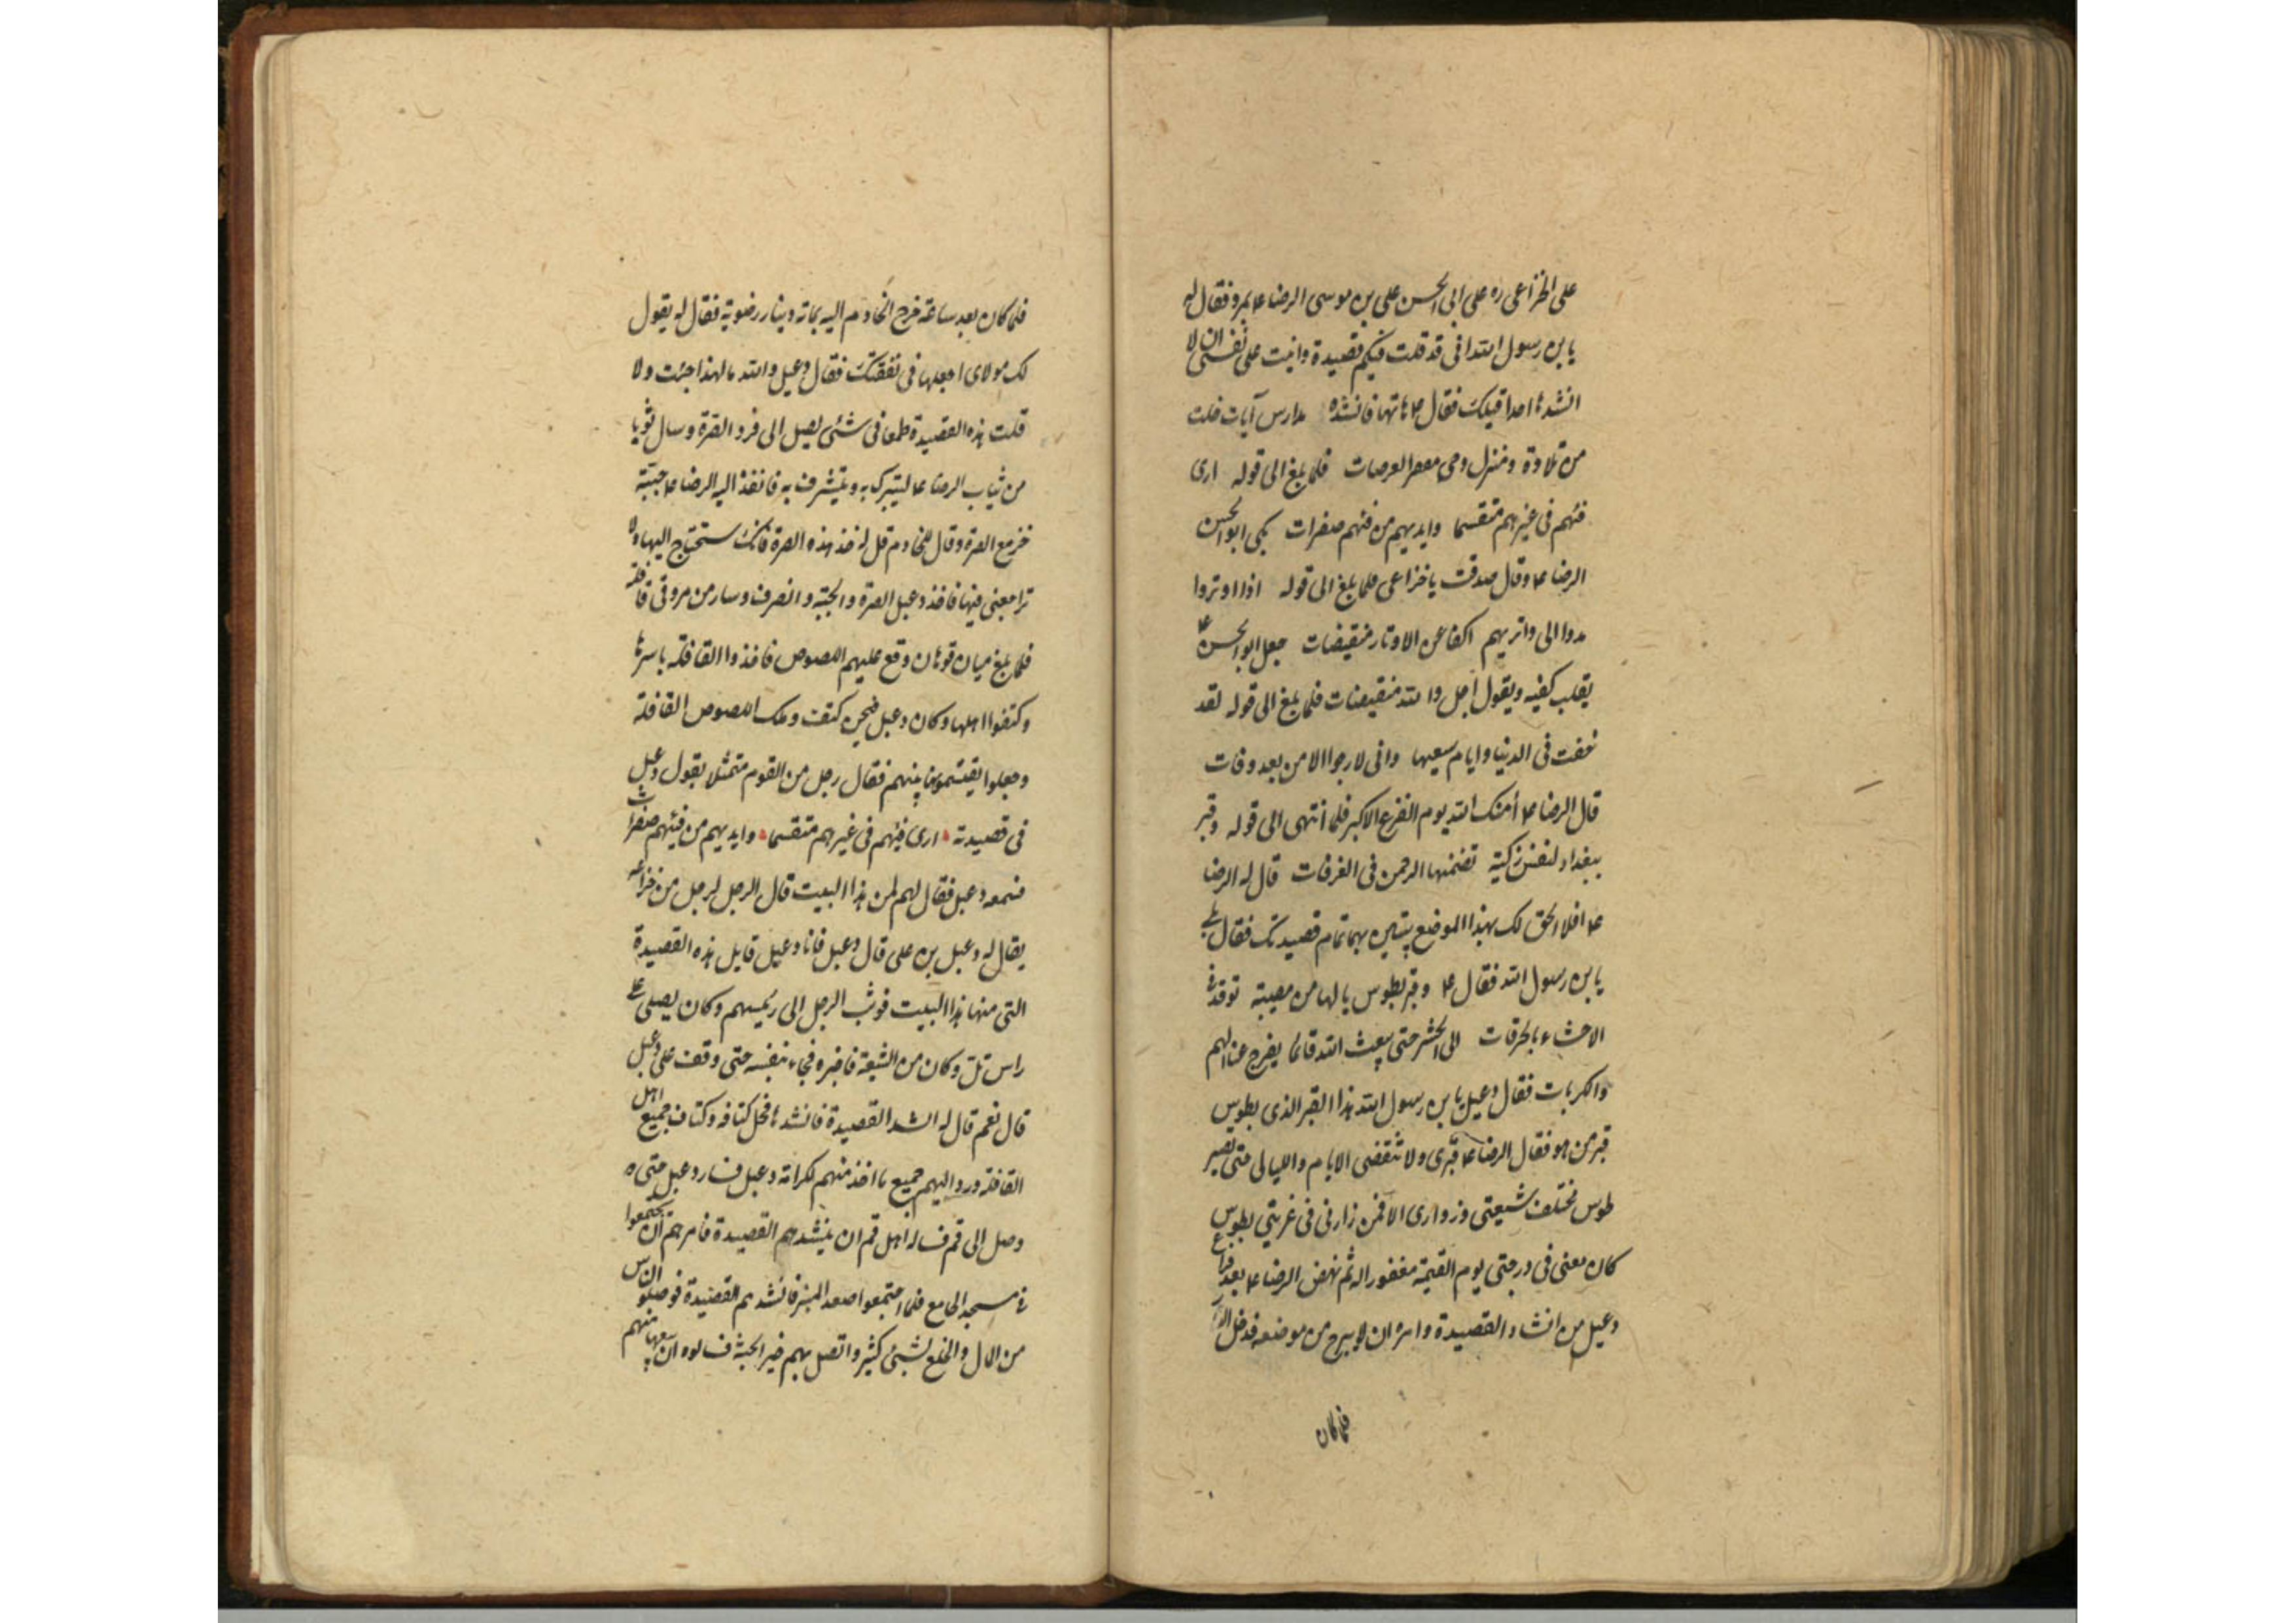 على الخزاعى ره على ابى الحسن على بن موسى الرضا ع بمرو فقال له
يا بن رسول الله انى قد قلت فيكم قصيدة وآليت على نفسى ان لا
انشدها احدا قبلك فقال ع هاتها فانشده مدارس آيات خلت
من تلاوة ومنزل وحى مقفر العرصات فلما بلغ الى قوله ارى
فيئهم فى غيرهم متقسما وايديهم من فيئهم صفرات بكى ابو الحسن
الرضا ع وقال صدقت يا خزاعى فلما بلغ الى قوله اذا اوتروا
مدوا الى واتريهم اكفا عن الاوتار منقبضات جعل ابو الحسن ع
يقلب كفيه ويقول اجل والله منقبضات فلما بلغ الى قوله لقد
خفت فى الدنيا وايام سعيها وانى لارجوا الامن بعد وفات
قال الرضا ع أمنك الله يوم الفزع الاكبر فلما انتهى الى قوله وقبر
ببغداد لنفس زكية تضمنها الرحمن فى الغرفات قال له الرضا
ع افلا الحق لك بهذا الموضع بيتين بهما تمام قصيدتك فقال بلى
يا بن رسول الله فقال ع وقبر بطوس يا لها من مصيبة توقد فى
الاحشاء بالحرقات الى الحشر حتى يبعث الله قائما يفرج عنا الهم
والكربات فقال دعبل يا بن رسول الله هذا القبر الذى بطوس
قبر من هو فقال الرضا ع قبرى ولا تنقضى الايام والليالى حتى تصير
طوس مختلف شيعتى وزوارى الا فمن زارنى فى غربتى بطوس
كان معى فى درجتى يوم القيمة مغفورا له ثم نهض الرضا ع بعد فراغ
دعبل من انشاد القصيدة وامره ان لا يبرح من موضعه فدخل الدار
فلما كان
فلما كان بعد ساعة خرج الخادم اليه بماة دينار رضوية فقال له يقول
لك مولاى اجعلها فى نفقتك فقال دعبل والله ما لهذا جئت ولا
قلت هذه القصيدة طمعا فى شئ يصل الى فرد الصرة وسال ثوبا
من ثياب الرضا ع ليتبرك به ويتشرف به فانفذ اليه الرضا ع جبة
خز مع الصرة وقال للخادم قل له خذ هذه الصرة فانك ستحتاج اليها ولا
تراجعنى فيها فاخذ دعبل الصرة والجبة وانصرف وسار من مرو فى قافلة
فلما بلغ ميان قوهان وقع عليهم اللصوص فاخذوا القافلة باسرها
وكتفوا اهلها وكان دعبل فيمن كتف وملك اللصوص القافلة
وجعلوا يقتسمونها بينهم فقال رجل من القوم متمثلا بقول دعبل
فى قصيدته ارى فيئهم فى غيرهم متقسما وايديهم من فيئهم صفرات
فسمعه دعبل فقال لهم لمن هذا البيت قال الرجل لرجل من خزاعه
يقال له دعبل بن على قال دعبل فانا دعبل قايل هذه القصيدة
التى منها هذا البيت فوثب الرجل الى رئيسهم وكان يصلى على
راس تل وكان من الشيعة فاخبره فجاء بنفسه حتى وقف على دعبل
قال نعم قال له انشد القصيدة فانشدها فحل كتافه وكتاف جميع اهل
القافلة ورد اليهم جميع ما اخذ منهم لكرامة دعبل فسار دعبل حتى
وصل الى قم فساله اهل قم ان ينشدهم القصيدة فامرهم ان يجتمعوا
فى مسجد الجامع فلما اجتمعوا صعد المنبر فانشدهم القصيدة فوصله الناس
من المال والخلع بشئ كثير واتصل بهم خبر الجبة فسالوه ان يبيعها منهم